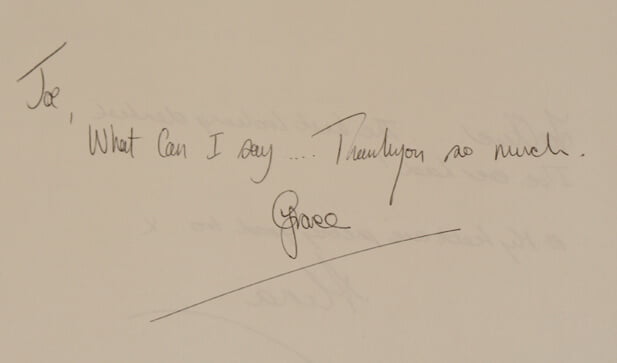 Joe,
What Can I say .... Thankyou so much.
Grace